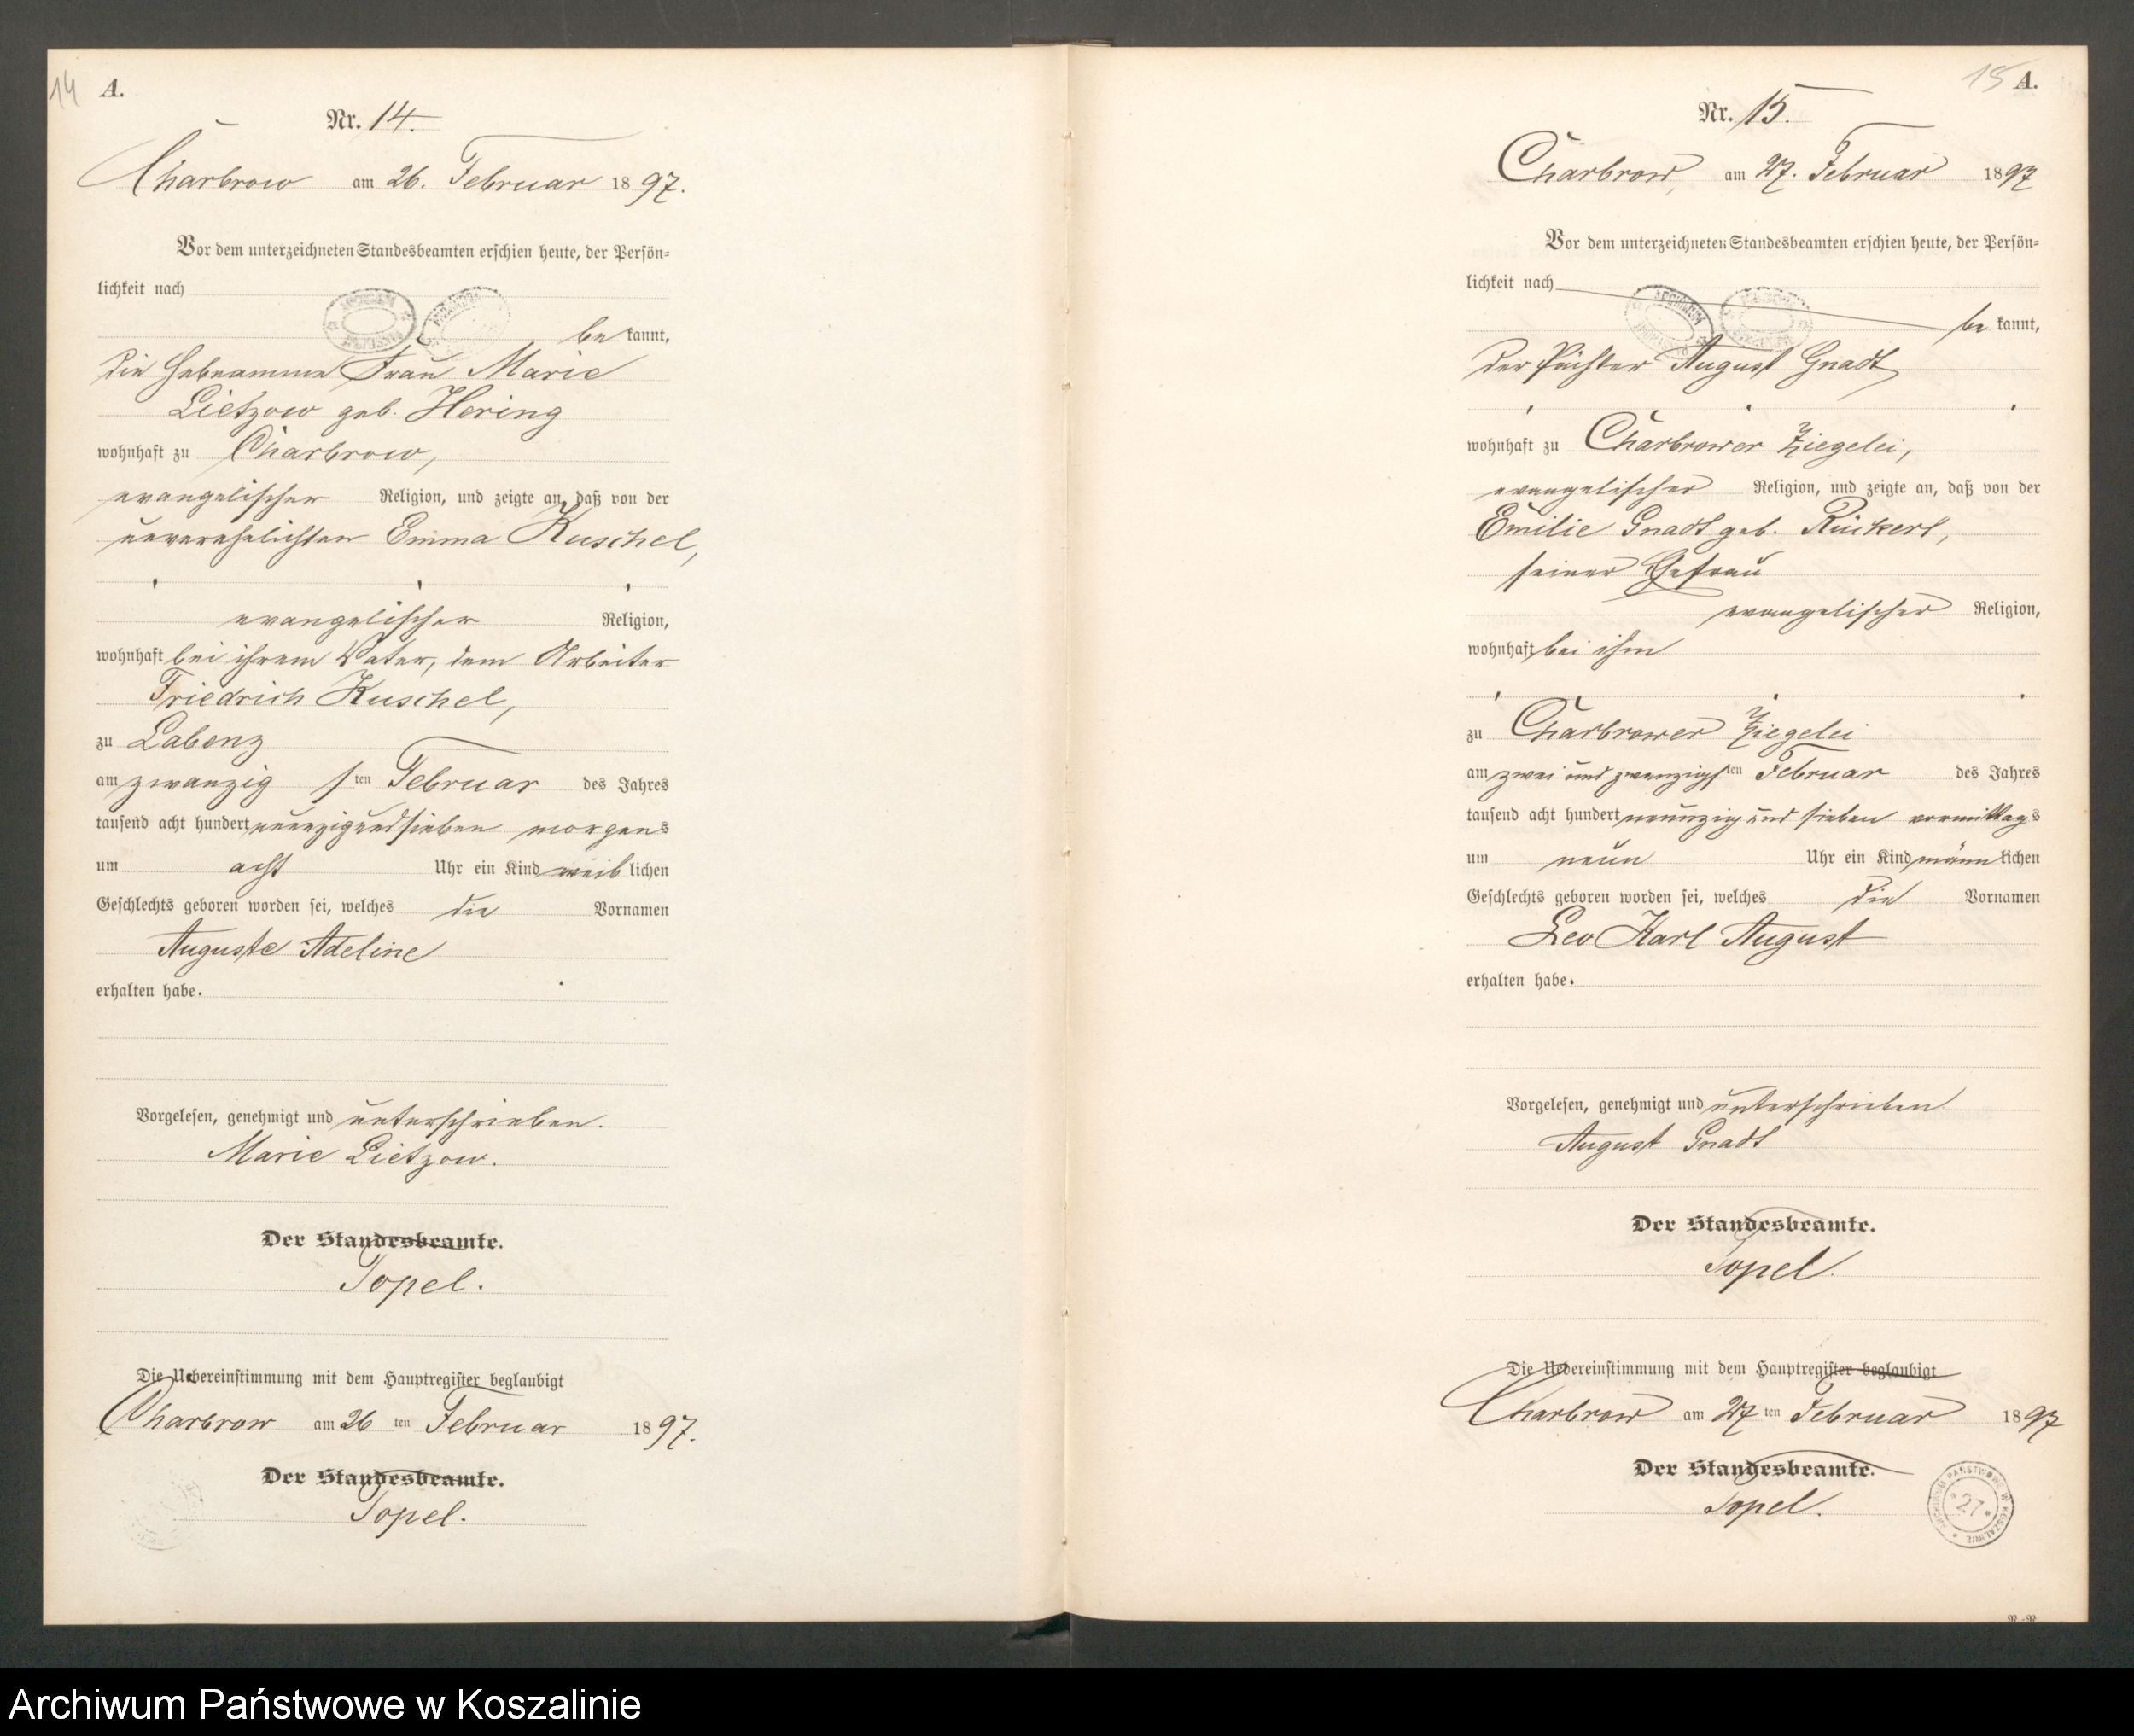 14 A.
Nr. 14.
Charbrow am 26. Februar 1897.
Vor dem unterzeichneten Standesbeamten erschien heute, der Persön=
lichkeit nach
be kannt,
die Hebeamme Frau Marie
Lietzow geb. Hering
wohnhaft zu Charbrow,
evangelischer Religion, und zeigte an, daß von der
unverehelichten Emma Kuschel,
evangelischer Religion,
wohnhaft bei ihrem Vater, dem Arbeiter
Friedrich Kuschel,
zu Labenz
am zwanzig sten Februar des Jahres
tausend acht hundert neunzig und sieben morgens
um acht Uhr ein Kind weib lichen
Geschlechts geboren worden sei, welches die Vornamen
Auguste Adeline
erhalten habe.
Vorgelesen, genehmigt und unterschrieben.
Marie Lietzow.
Der Standesbeamte.
Topel.
Die Uebereinstimmung mit dem Hauptregister beglaubigt
Charbrow am 26 ten Februar 1897.
Der Standesbeamte.
Topel.
15 A.
Nr. 15.
Charbrow, am 27. Februar 1897
Vor dem unterzeichneten Standesbeamten erschien heute, der Persön=
lichkeit nach
be kannt,
der Pächter August Gnadt
wohnhaft zu Charbrower Ziegelei,
evangelischer Religion, und zeigte an, daß von der
Emilie Gnadt geb. Rückert,
seiner Ehefrau
evangelischer Religion,
wohnhaft bei ihm
zu Charbrower Ziegelei
am zwei und zwanzigsten Februar des Jahres
tausend acht hundert neunzig und sieben vormittags
um neun Uhr ein Kind männ lichen
Geschlechts geboren worden sei, welches die Vornamen
Leo Karl August
erhalten habe.
Vorgelesen, genehmigt und unterschrieben
August Gnadt
Der Standesbeamte.
Topel.
Die Uebereinstimmung mit dem Hauptregister beglaubigt
Charbrow am 27 ten Februar 1897
Der Standesbeamte.
Topel.
ARCHIWUM PAŃSTWOWE W KOSZALINIE
* 27 *
Archiwum Państwowe w Koszalinie